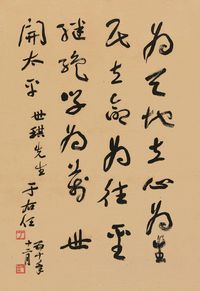 為天地立心為生
民立命為往聖
繼絕學為萬世
開太平
世琪先生
于右任
五十年
十二月